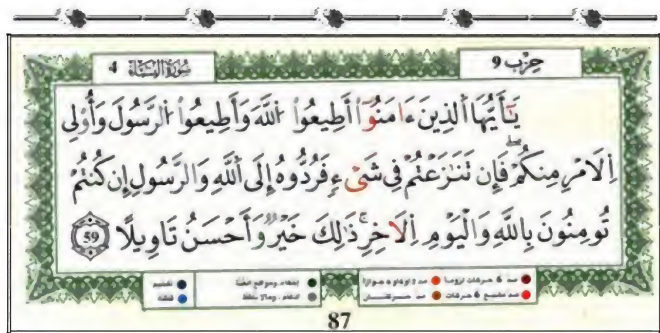 سُورَةُ النِّسَاءِ 4
حِزْب 9
يَٰٓأَيُّهَا اَ۬لذِينَ ءَامَنُوٓاْ أَطِيعُواْ اُ۬للَّهَ وَأَطِيعُواْ اُ۬لرَّسُولَ وَأُوْلِے
اِ۬لَامْرِ مِنكُمْۖ فَإِن تَنَٰزَعْتُمْ فِے شَےْءٖ فَرُدُّوهُ إِلَى اَ۬للَّهِ وَالرَّسُولِ إِن كُنتُمْ
تُومِنُونَ بِاللَّهِ وَالْيَوْمِ اِ۬لَاخِرِۖ ذَٰلِكَ خَيْرٞ وَأَحْسَنُ تَاوِيلًا 59
87